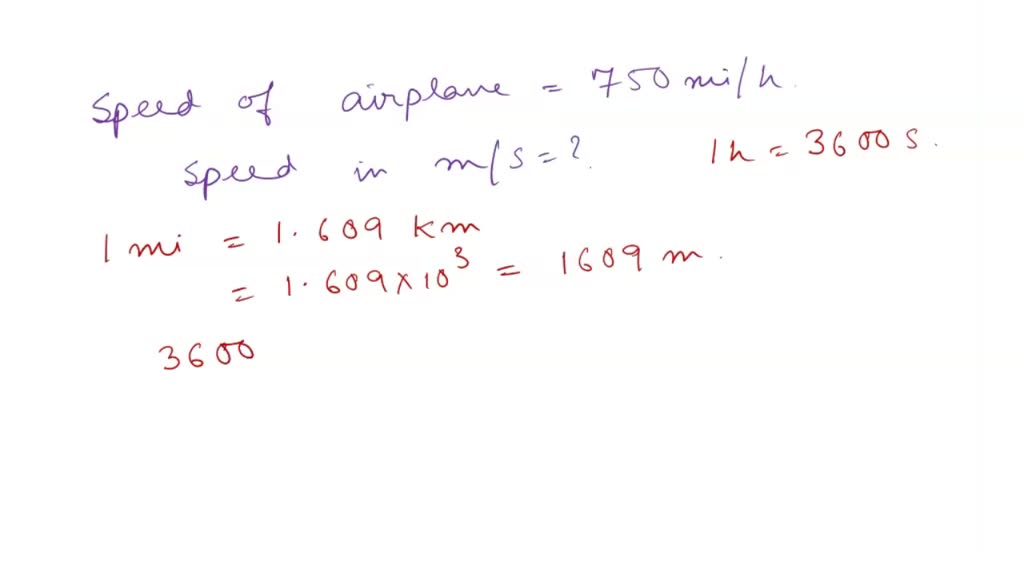 Speed of airplane = 750 mi/h.
Speed in m/s = ?.
1h = 3600 s.
1 mi = 1.609 km
= 1.609 x 10³ = 1609 m.
3600